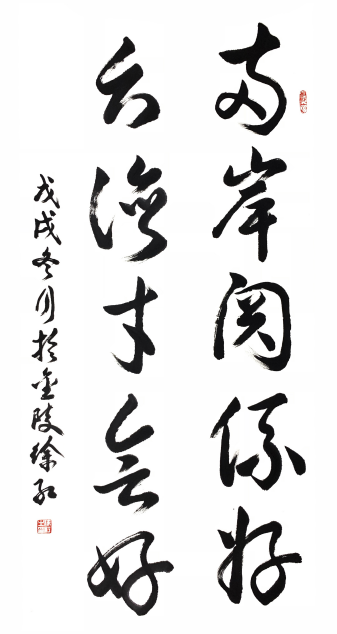 两岸关系好
台湾才会好
戊戌冬月于金陵徐红